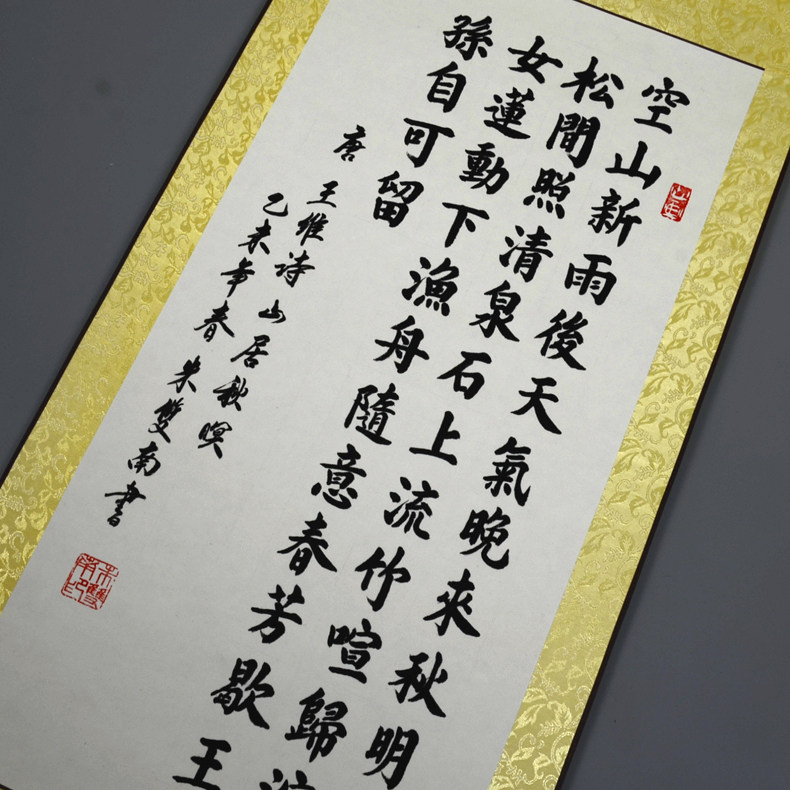 空山新雨後天氣晚來秋明
松間照清泉石上流竹喧歸浣
女蓮動下漁舟隨意春芳歇王
孫自可留
唐 王維詩 山居秋暝
乙未年春 朱雙南書
朱雙南印